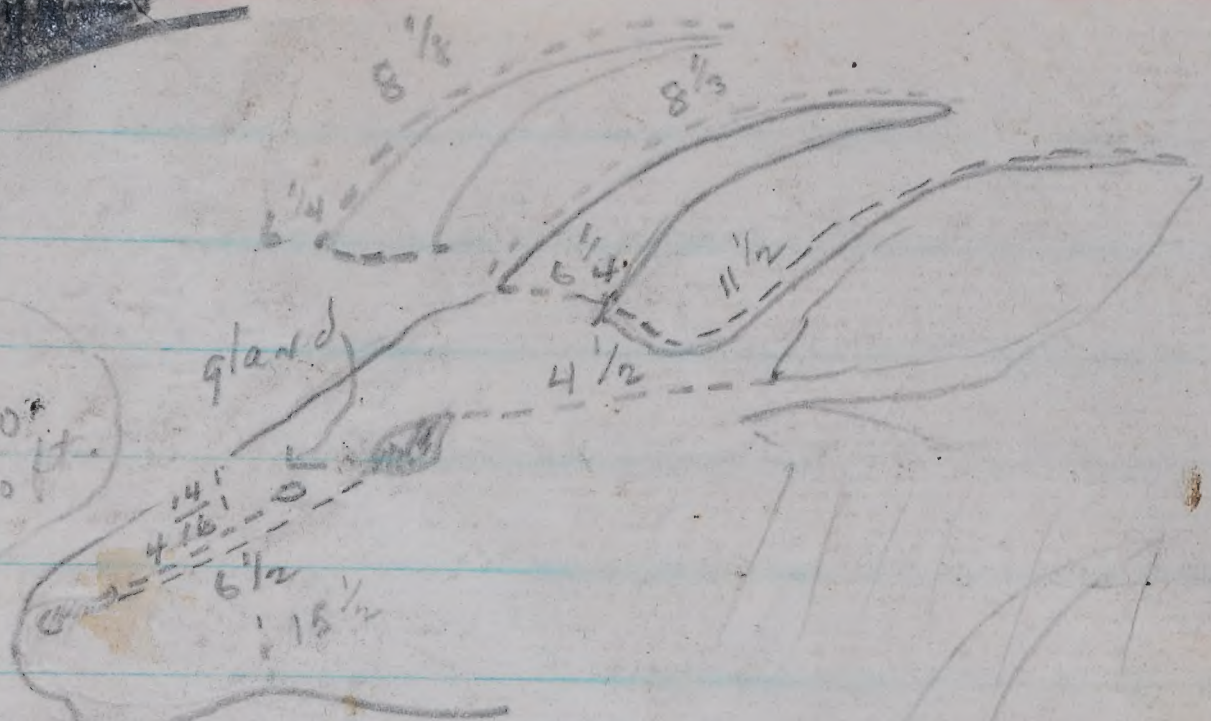 8 1/8
8 1/3
6 1/4
6 1/4
11 1/2
gland
4 1/2
4 14/16
6 1/2
15 1/2